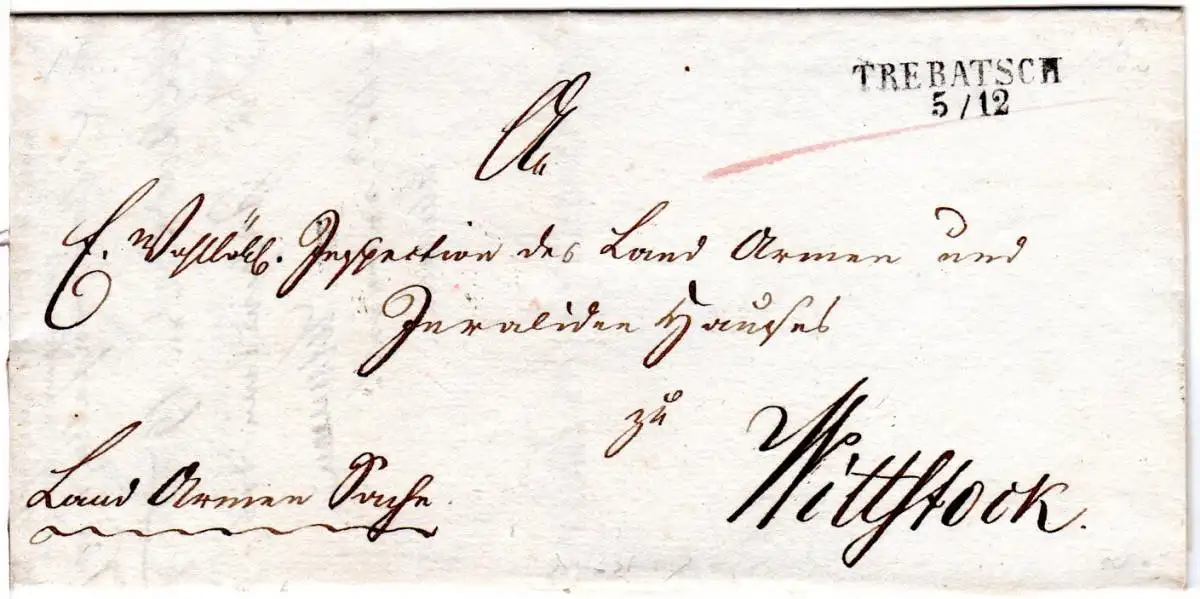 TREBATSCH
5/12
An
E. Wohllöbl. Inspection des Land Armen und
Invaliden Hauses
zu
Wittstock.
Land Armen Sache.